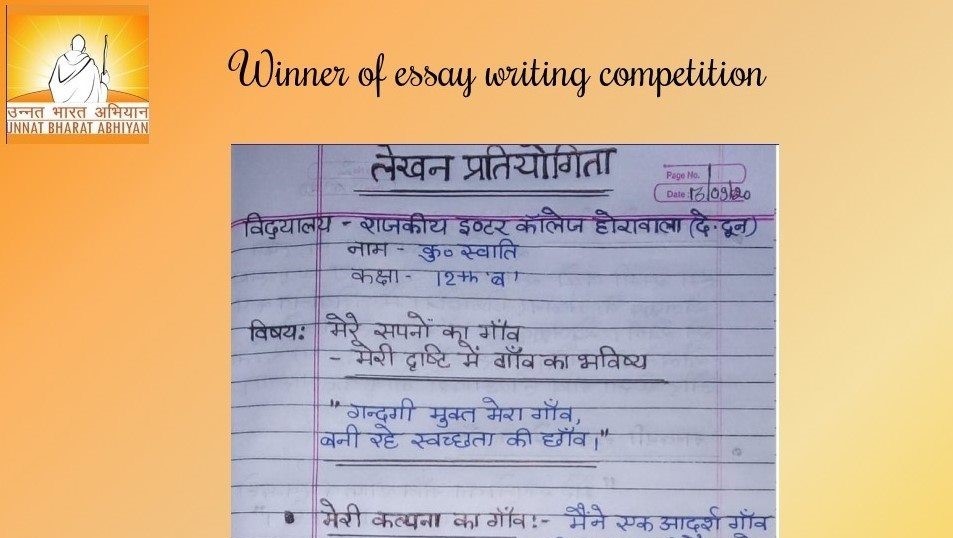 उन्नत भारत अभियान
UNNAT BHARAT ABHIYAN
Winner of essay writing competition
लेखन प्रतियोगिता
Page No.
Date 13/09/20
विद्यालय - राजकीय इ०टर कॉलेज होरावाला (दे.दून)
नाम - कु० स्वाति
कक्षा - 12th 'ब'
विषय: मेरे सपनों का गाँव
- मेरी दृष्टि में गाँव का भविष्य
"गन्दगी मुक्त मेरा गाँव,
बनी रहे स्वच्छता की छाँव।"
• मेरी कल्पना का गाँव:- मैंने एक आदर्श गाँव